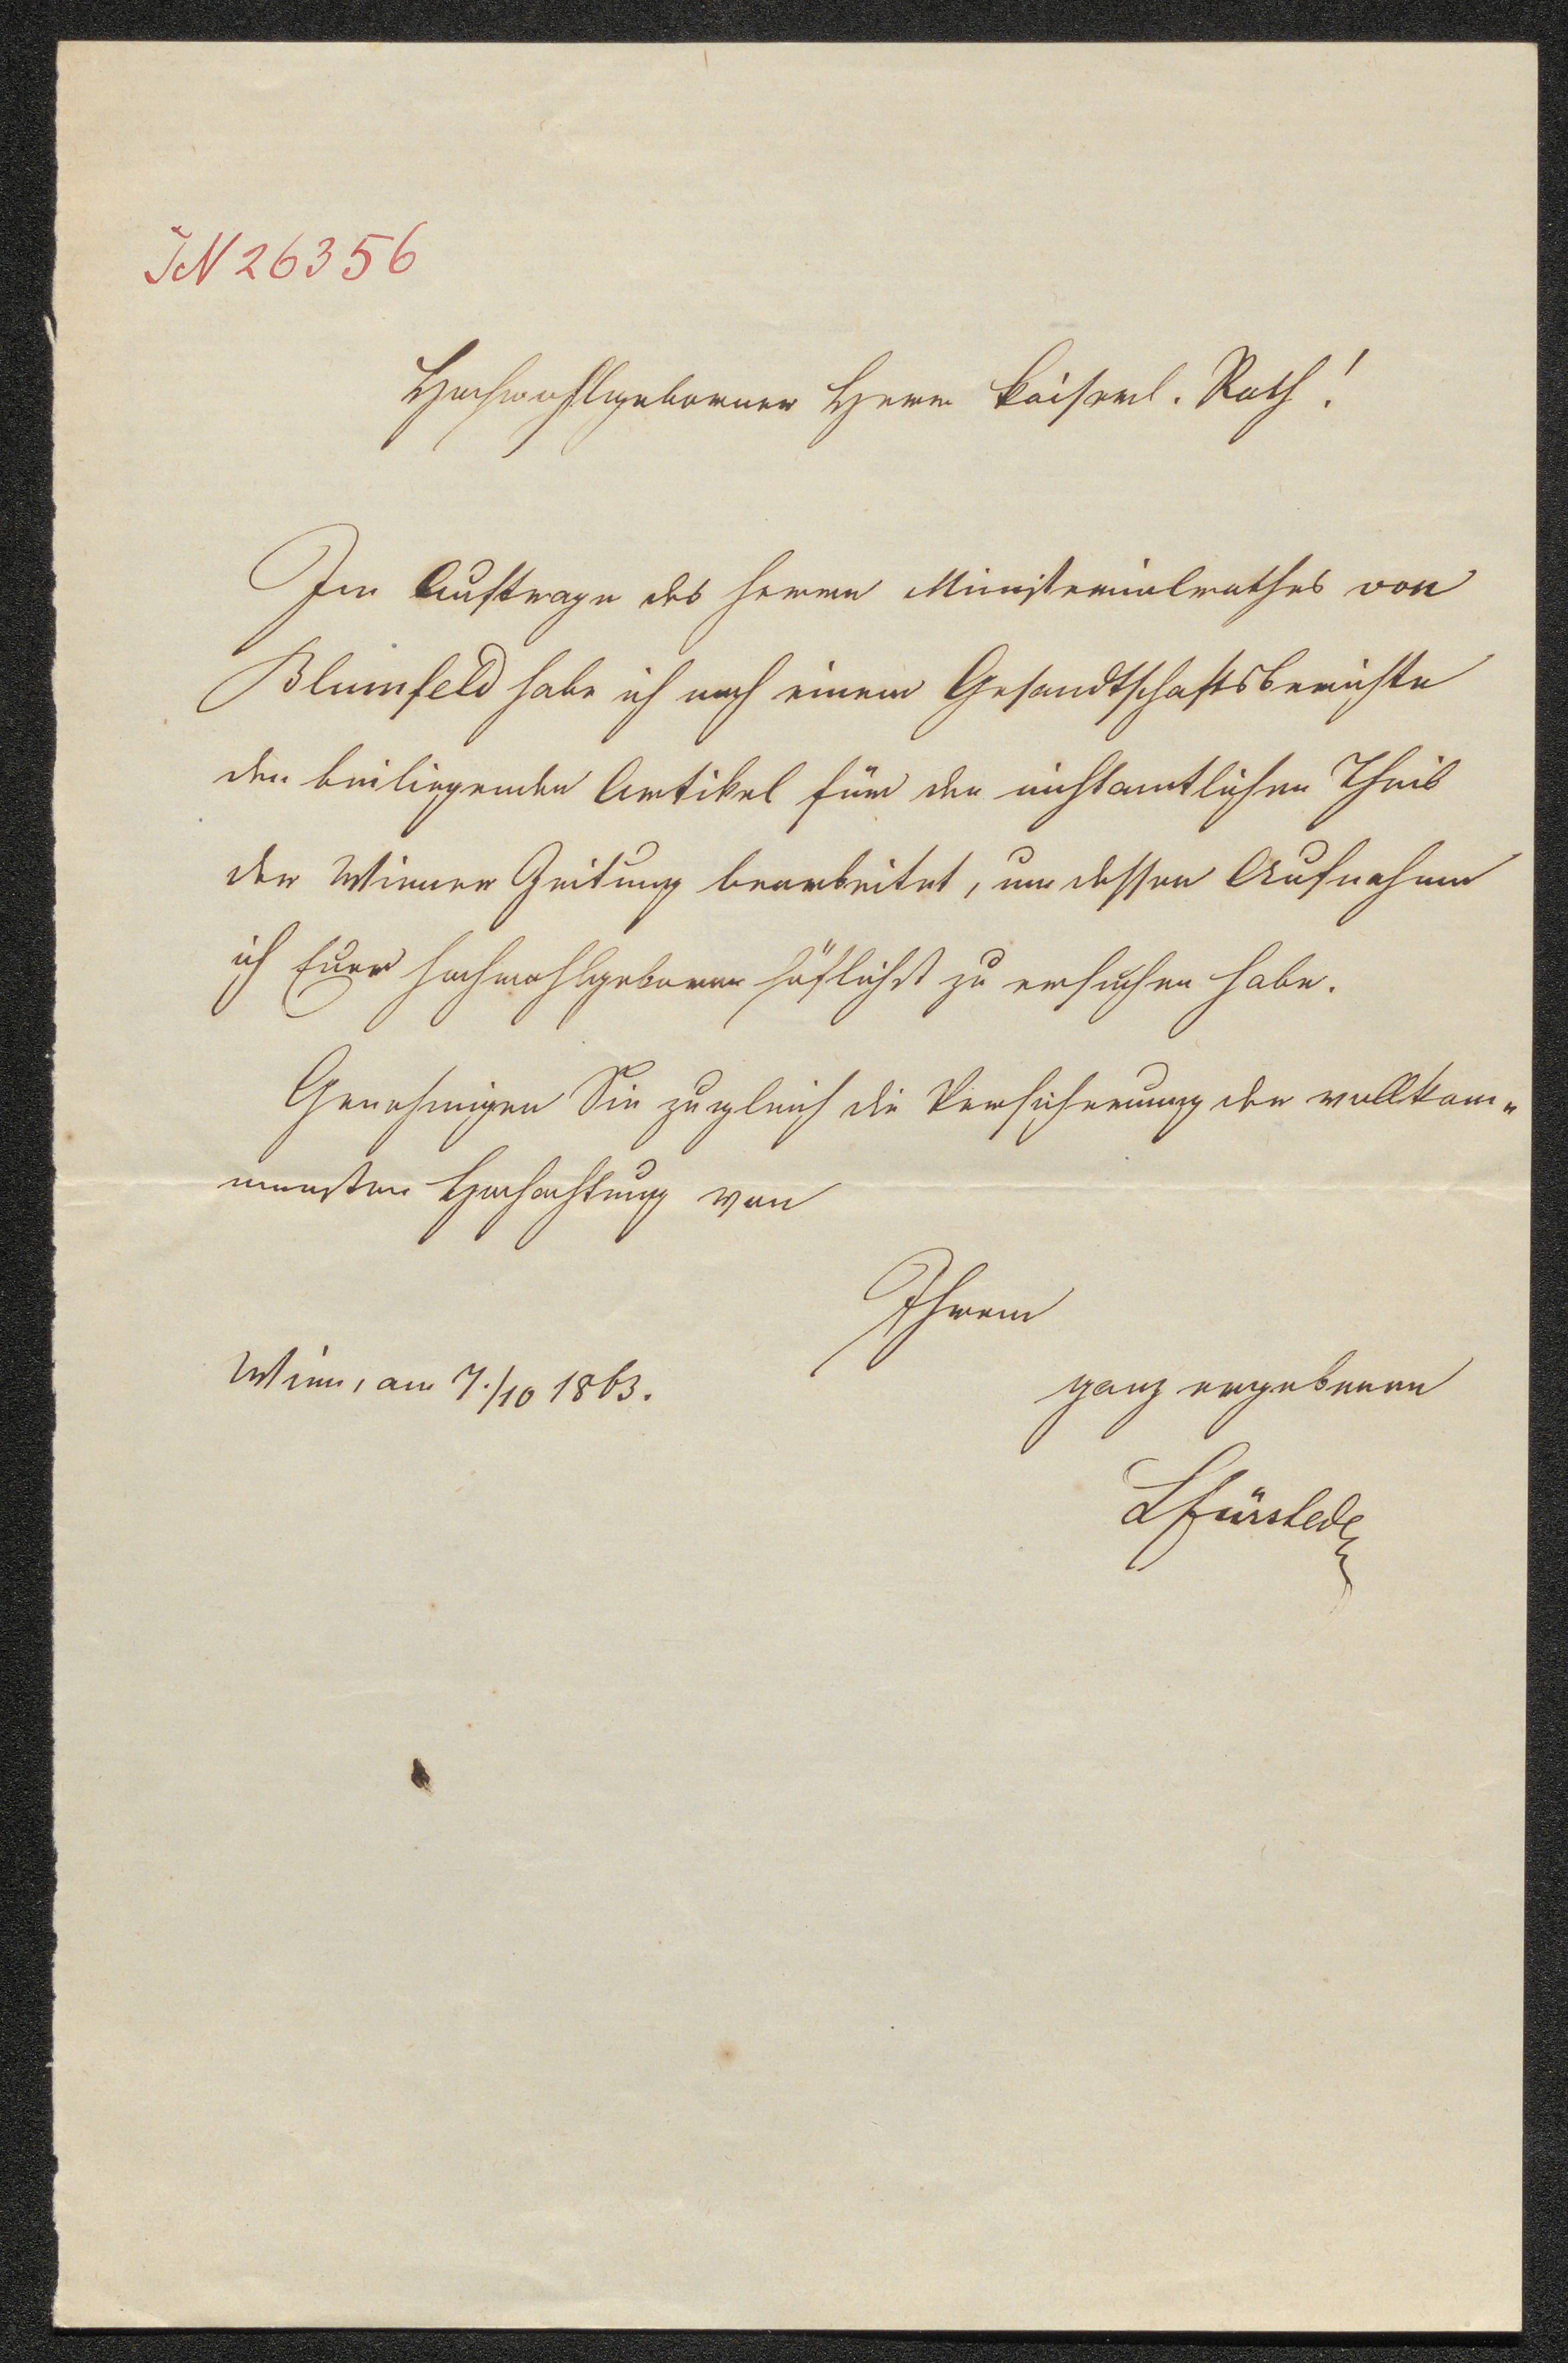 IN 26356
Hochwohlgeborner Herr kaiserl. Rath!
Im Auftrage des Herrn Ministerialrathes von
Blumfeld habe ich nach einem Gesandtschaftsberichte
den beiliegenden Artikel für den nichtamtlichen Theil
der Wiener Zeitung bearbeitet, um dessen Aufnahme
ich Euer Hochwohlgeboren höflichst zu ersuchen habe.
Genehmigen Sie zugleich die Versicherung der vollkom„
mensten Hochachtung von
Ihrem
Wien, am 7./10 1863.
ganz ergebenen